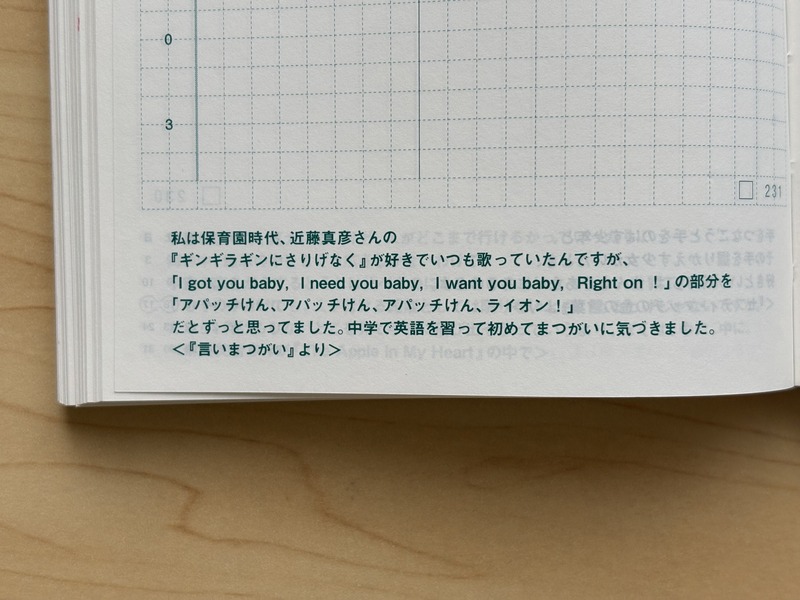 0
3
231
私は保育園時代、近藤真彦さんの
『ギンギラギンにさりげなく』が好きでいつも歌っていたんですが、
「I got you baby, I need you baby, I want you baby, Right on !」の部分を
「アパッチけん、アパッチけん、アパッチけん、ライオン！」
だとずっと思ってました。中学で英語を習って初めてまつがいに気づきました。
＜『言いまつがい』より＞